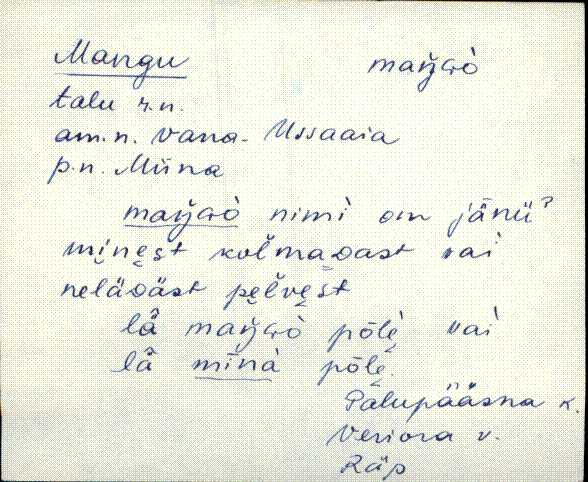 Mangu maŋ̆Gò
talu r.n.
am.n. Vana-Ussaaia
p.n. Miina
maŋ̆Gò nimì om jänü?
minest kolmaDast vai
neläDäst pelvest
lǟ maŋ̆Gò pōlè vai
lǟ mīnà pōlè.
Palupääsna k.
Veriora v.
Räp